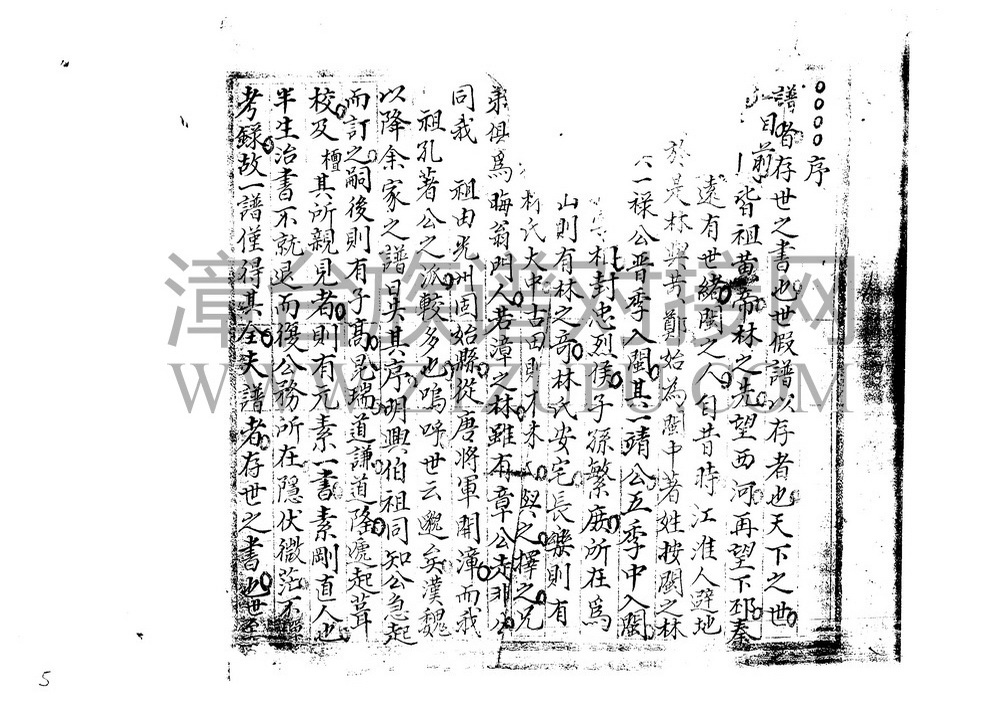 序
譜者存世之書也世假譜以存者也天下之世
目前皆祖黃帝林之先望西河再望下邳秦
遠有世緒閩之人自昔時江淮人避地
於是林與黃鄭始為閩中著姓按閩之林
一祿公晉季入閩其一靖公五季中入閩
封忠烈侯子孫繁庶所在為
山則有林之奇林氏安宅長樂則有
林氏大中古田則有與之擇之兄
弟俱為晦翁門人若漳之林雖有章公走非公
同我 祖由光州固始縣從唐將軍開漳而我
祖孔著公之派較多也嗚呼世云邈矣漢魏
以降余家之譜昊其序明興伯祖同知公急起
而訂之嗣後則有子高昆瑞道謙道隆遞起葺
校及檀其所親見者則有元素一書素剛直人也
半生治書不就退而復公務所在隱伏微茫不
考錄故一譜僅得其全夫譜者存世之書也世
漳台族谱对接网
WWW.ZTZUPU.COM
5